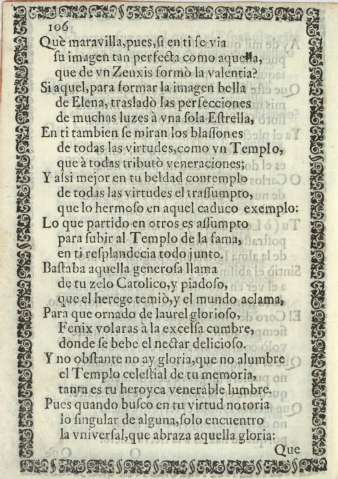 106
Què maravilla, pues, si en ti se via
su imagen tan perfecta como aquella,
que de vn Zeuxis formò la valentia?
Si aquel, para formar la imagen bella
de Elena, trasladò las perfecciones
de muchas luzes à vna sola Estrella,
En ti tambien se miran los blassones
de todas las virtudes, como vn Templo,
que à todas tributò veneraciones;
Y assi mejor en tu beldad contemplo
de todas las virtudes el trassumpto,
que lo hermoso en aquel caduco exemplo:
Lo que partido en otros es assumpto
para subir al Templo de la fama,
en ti resplandecia todo junto.
Bastaba aquella generosa llama
de tu zelo Catolico, y piadoso,
que el herege temiò, y el mundo aclama,
Para que ornado de laurel glorioso,
Fenix volaras à la excelsa cumbre,
donde se bebe el nectar delicioso.
Y no obstante no ay gloria, que no alumbre
el Templo celestial de tu memoria,
tanta es tu heroyca venerable lumbre.
Pues quando busco en tu virtud notoria
lo singular de alguna, solo encuentro
la vniversal, que abraza aquella gloria:
Que